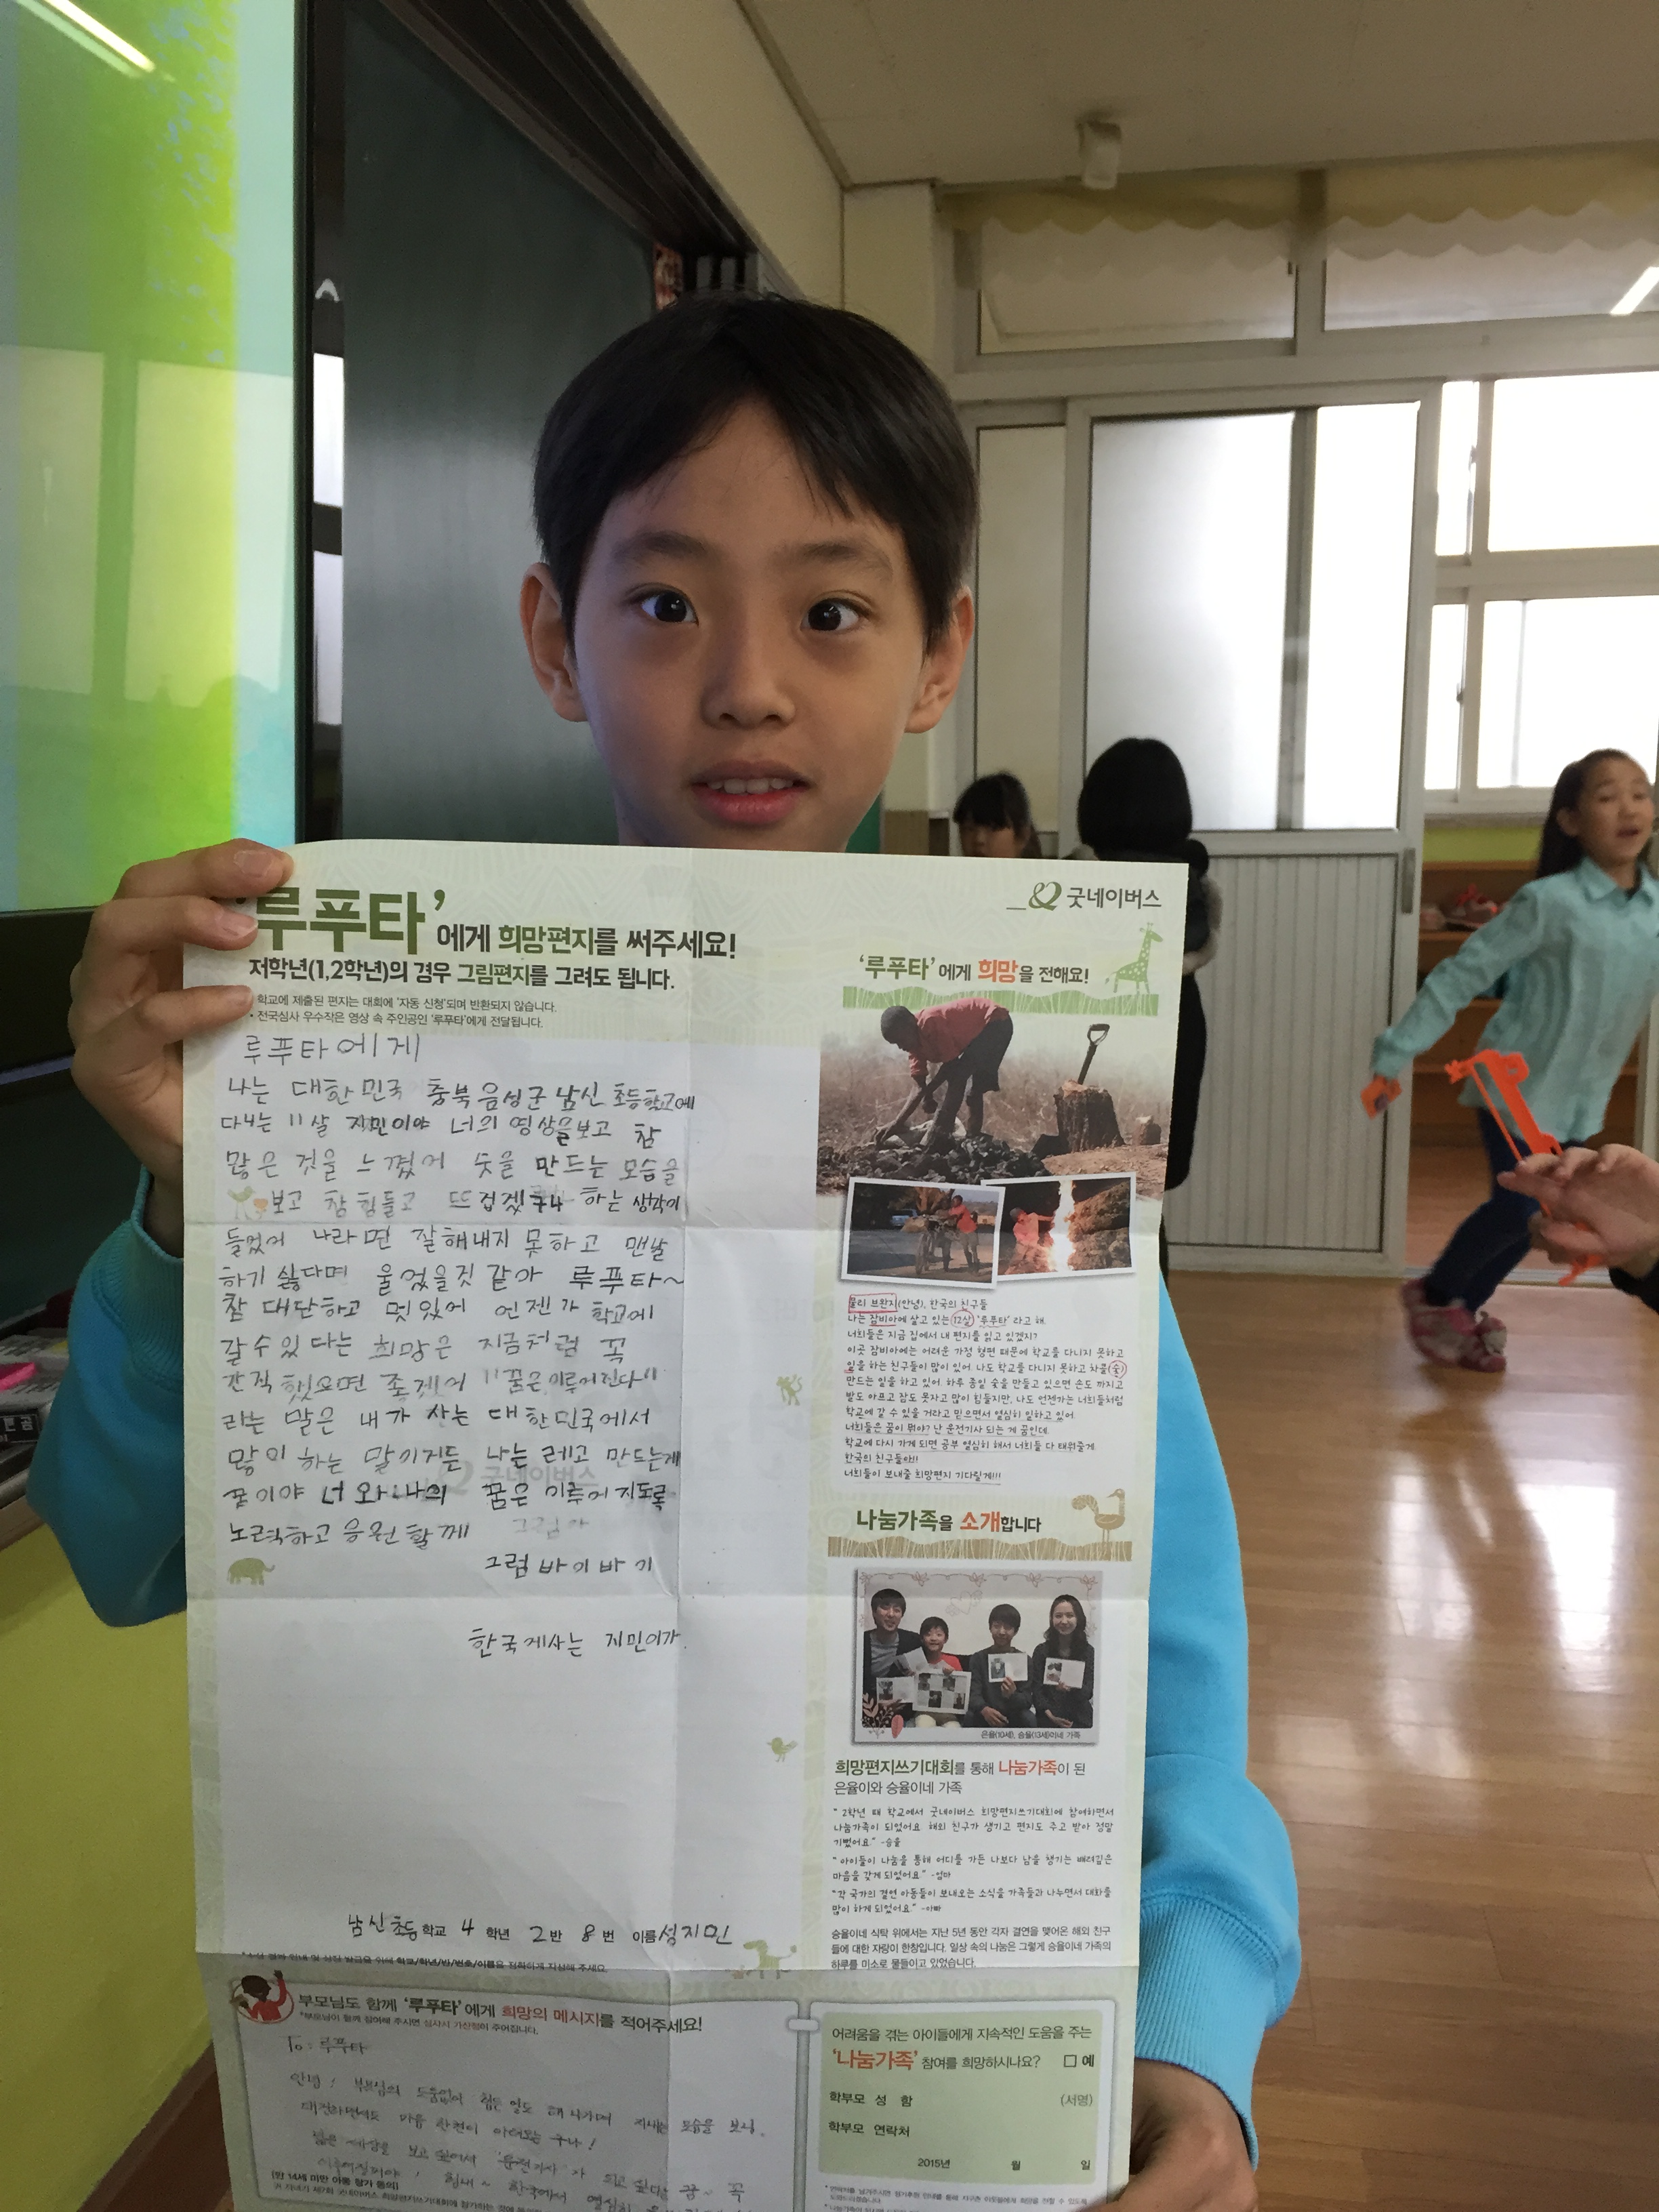 '루푸타'에게 희망편지를 써주세요!
저학년(1,2학년)의 경우 그림편지를 그려도 됩니다.
학교에 제출된 편지는 대회에 '자동 신청'되며 반환되지 않습니다.
• 전국심사 우수작은 영상 속 주인공인 '루푸타'에게 전달됩니다.
루푸타에게
나는 대한민국 충북 음성군 남신 초등학교에
다니는 11살 지민이야 너의 영상을보고 참
많은 것을 느꼈어 숯을 만드는 모습을
보고 참 힘들고 뜨겁겠구나 하는 생각이
들었어 나라면 잘해내지 못하고 맨날
하기 싫다며 울었을것 같아 루푸타~
참 대단하고 멋있어 언젠가 학교에
갈수있다는 희망은 지금처럼 꼭
간직 했으면 좋겠어 "꿈은 이루어진다"
라는 말은 내가 사는 대한민국에서
많이 하는 말이거든 나는 레고 만드는게
꿈이야 너와 나의 꿈은 이루어지도록
노력하고 응원할께
그럼 바이바이
한국게사는 지민이가
남신초등학교 4학년 2반 8번 이름 성지민
굿네이버스
'루푸타'에게 희망을 전해요!
물리 브완지(안녕), 한국의 친구들
나는 잠비아에 살고 있는 12살 '루푸타' 라고 해.
너희들은 지금 집에서 내 편지를 읽고 있겠지?
이곳 잠비아에는 어려운 가정 형편 때문에 학교를 다니지 못하고
일을 하는 친구들이 많이 있어. 나도 학교를 다니지 못하고 차콜(숯)
만드는 일을 하고 있어. 하루 종일 숯을 만들고 있으면 손도 까지고
발도 아프고 잠도 못자고 많이 힘들지만, 나도 언젠가는 너희들처럼
학교에 갈 수 있을 거라고 믿으면서 열심히 일하고 있어.
너희들은 꿈이 뭐야? 난 운전기사 되는 게 꿈인데.
학교에 다시 가게 되면 공부 열심히 해서 너희들 다 태워줄게.
한국의 친구들아!!
너희들이 보내줄 희망편지 기다릴게!!!
나눔가족을 소개합니다
은율(10세), 승율(13세)이네 가족
희망편지쓰기대회를 통해 나눔가족이 된
은율이와 승율이네 가족
"2학년 때 학교에서 굿네이버스 희망편지쓰기대회에 참여하면서
나눔가족이 되었어요. 해외 친구가 생기고 편지도 주고 받아 정말
기뻤어요." -승율
"아이들이 나눔을 통해 어디를 가든 나보다 남을 챙기는 배려깊은
마음을 갖게 되었어요." -엄마
"각 국가의 결연 아동들이 보내오는 소식을 가족들과 나누면서 대화를
많이 하게 되었어요." -아빠
승율이네 식탁 위에서는 지난 5년 동안 각자 결연을 맺어온 해외 친구
들에 대한 자랑이 한창입니다. 일상 속의 나눔은 그렇게 승율이네 가족의
하루를 미소로 물들이고 있었습니다.
부모님도 함께 '루푸타'에게 희망의 메시지를 적어주세요!
*부모님이 함께 참여해 주시면 심사시 가산점이 주어집니다.
To: 루푸타
안녕! 부모님의 도움없이 힘든 일도 해 나가며 지내는 모습을 보니
마음 한편이
(만 14세 미만 아동 참가 동의)
어려움을 겪는 아이들에게 지속적인 도움을 주는
'나눔가족' 참여를 희망하시나요? □ 예
학부모 성 함 (서명)
학부모 연락처
2015년 월 일